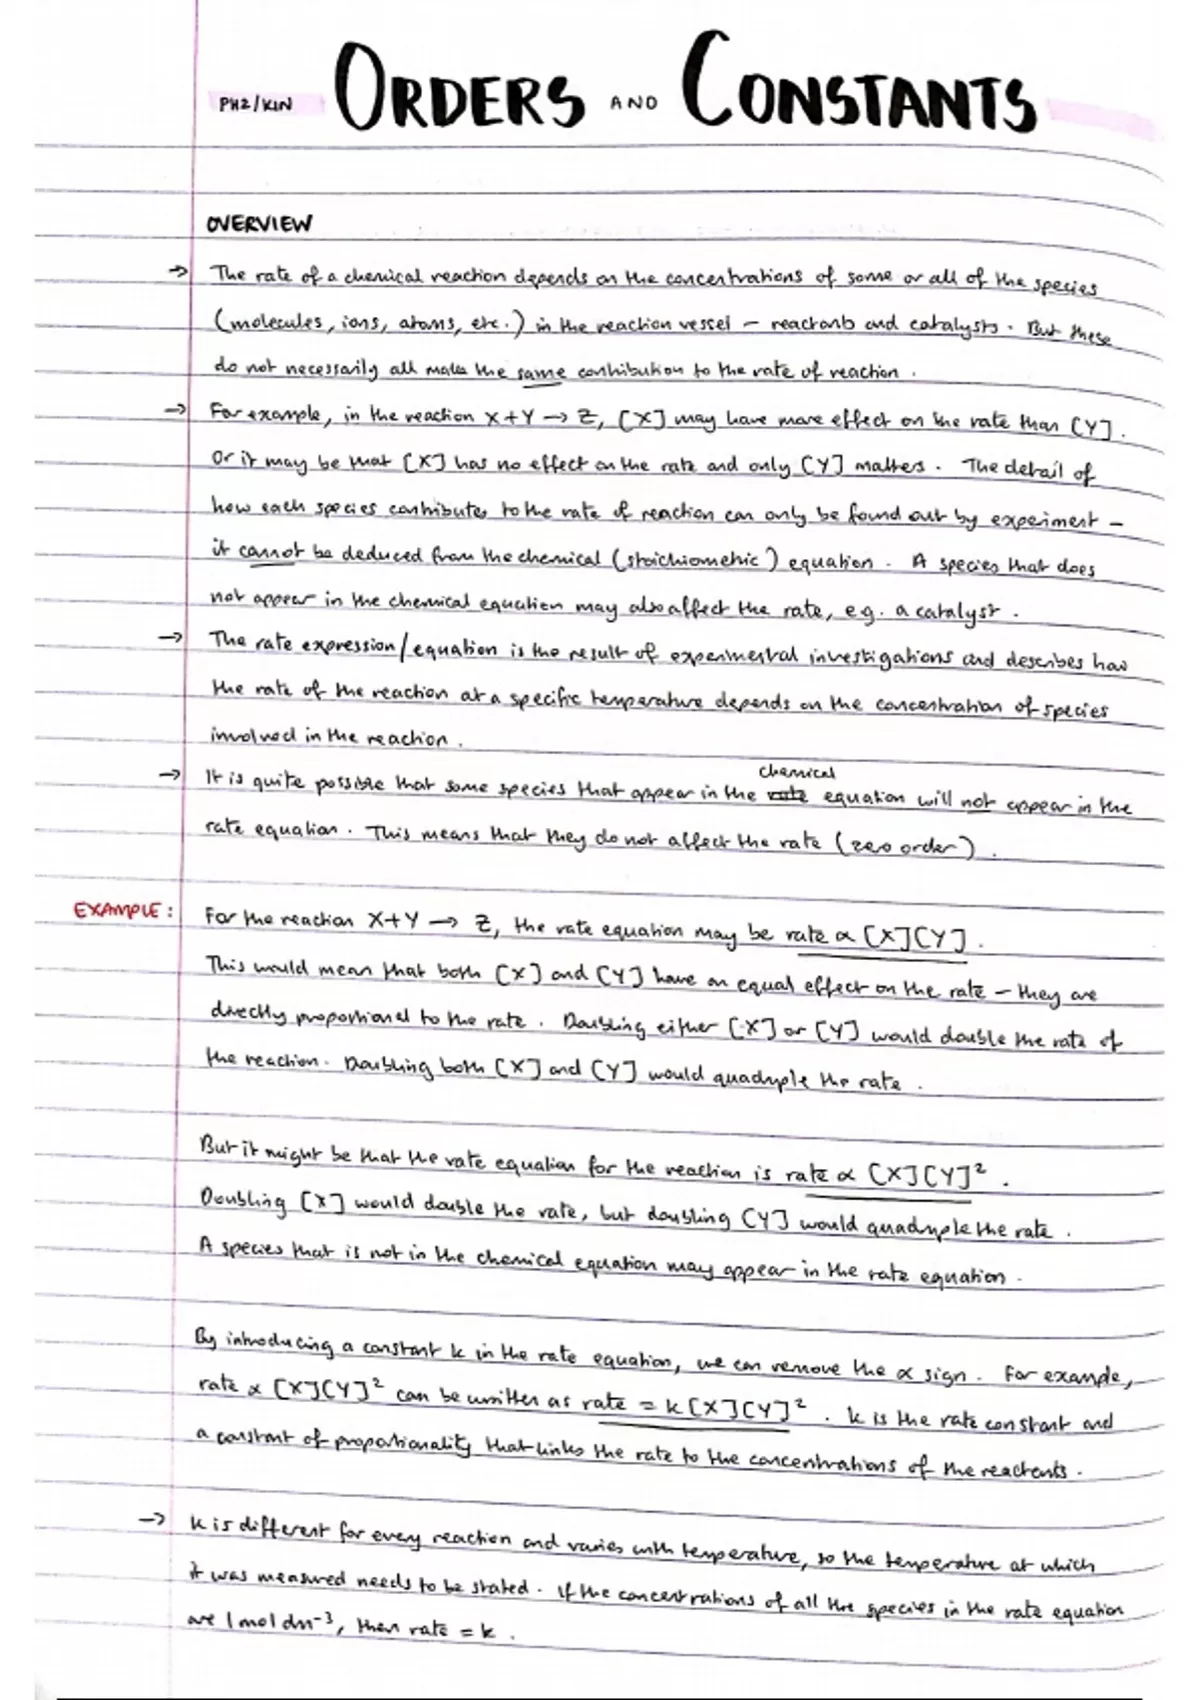 PH2/KIN ORDERS AND CONSTANTS
OVERVIEW
→ The rate of a chemical reaction depends on the concentrations of some or all of the species
(molecules, ions, atoms, etc.) in the reaction vessel – reactants and catalysts. But these
do not necessarily all make the same contribution to the rate of reaction.
→ For example, in the reaction X+Y → Z, [X] may have more effect on the rate than [Y].
Or it may be that [X] has no effect on the rate and only [Y] matters. The detail of
how each species contributes to the rate of reaction can only be found out by experiment –
it cannot be deduced from the chemical (stoichiometric) equation. A species that does
not appear in the chemical equation may also affect the rate, e.g. a catalyst.
→ The rate expression/equation is the result of experimental investigations and describes how
the rate of the reaction at a specific temperature depends on the concentration of species
involved in the reaction.
chemical
→ It is quite possible that some species that appear in the rate equation will not appear in the
rate equation. This means that they do not affect the rate (zero order).
EXAMPLE: For the reaction X+Y → Z, the rate equation may be rate ∝ [X][Y].
This would mean that both [X] and [Y] have an equal effect on the rate – they are
directly proportional to the rate. Doubling either [X] or [Y] would double the rate of
the reaction. Doubling both [X] and [Y] would quadruple the rate.
But it might be that the rate equation for the reaction is rate ∝ [X][Y]².
Doubling [X] would double the rate, but doubling [Y] would quadruple the rate.
A species that is not in the chemical equation may appear in the rate equation.
By introducing a constant k in the rate equation, we can remove the ∝ sign. For example,
rate ∝ [X][Y]² can be written as rate = k[X][Y]². k is the rate constant and
a constant of proportionality that links the rate to the concentrations of the reactants.
→ k is different for every reaction and varies with temperature, so the temperature at which
it was measured needs to be stated. If the concentrations of all the species in the rate equation
are 1 mol dm⁻³, then rate = k.